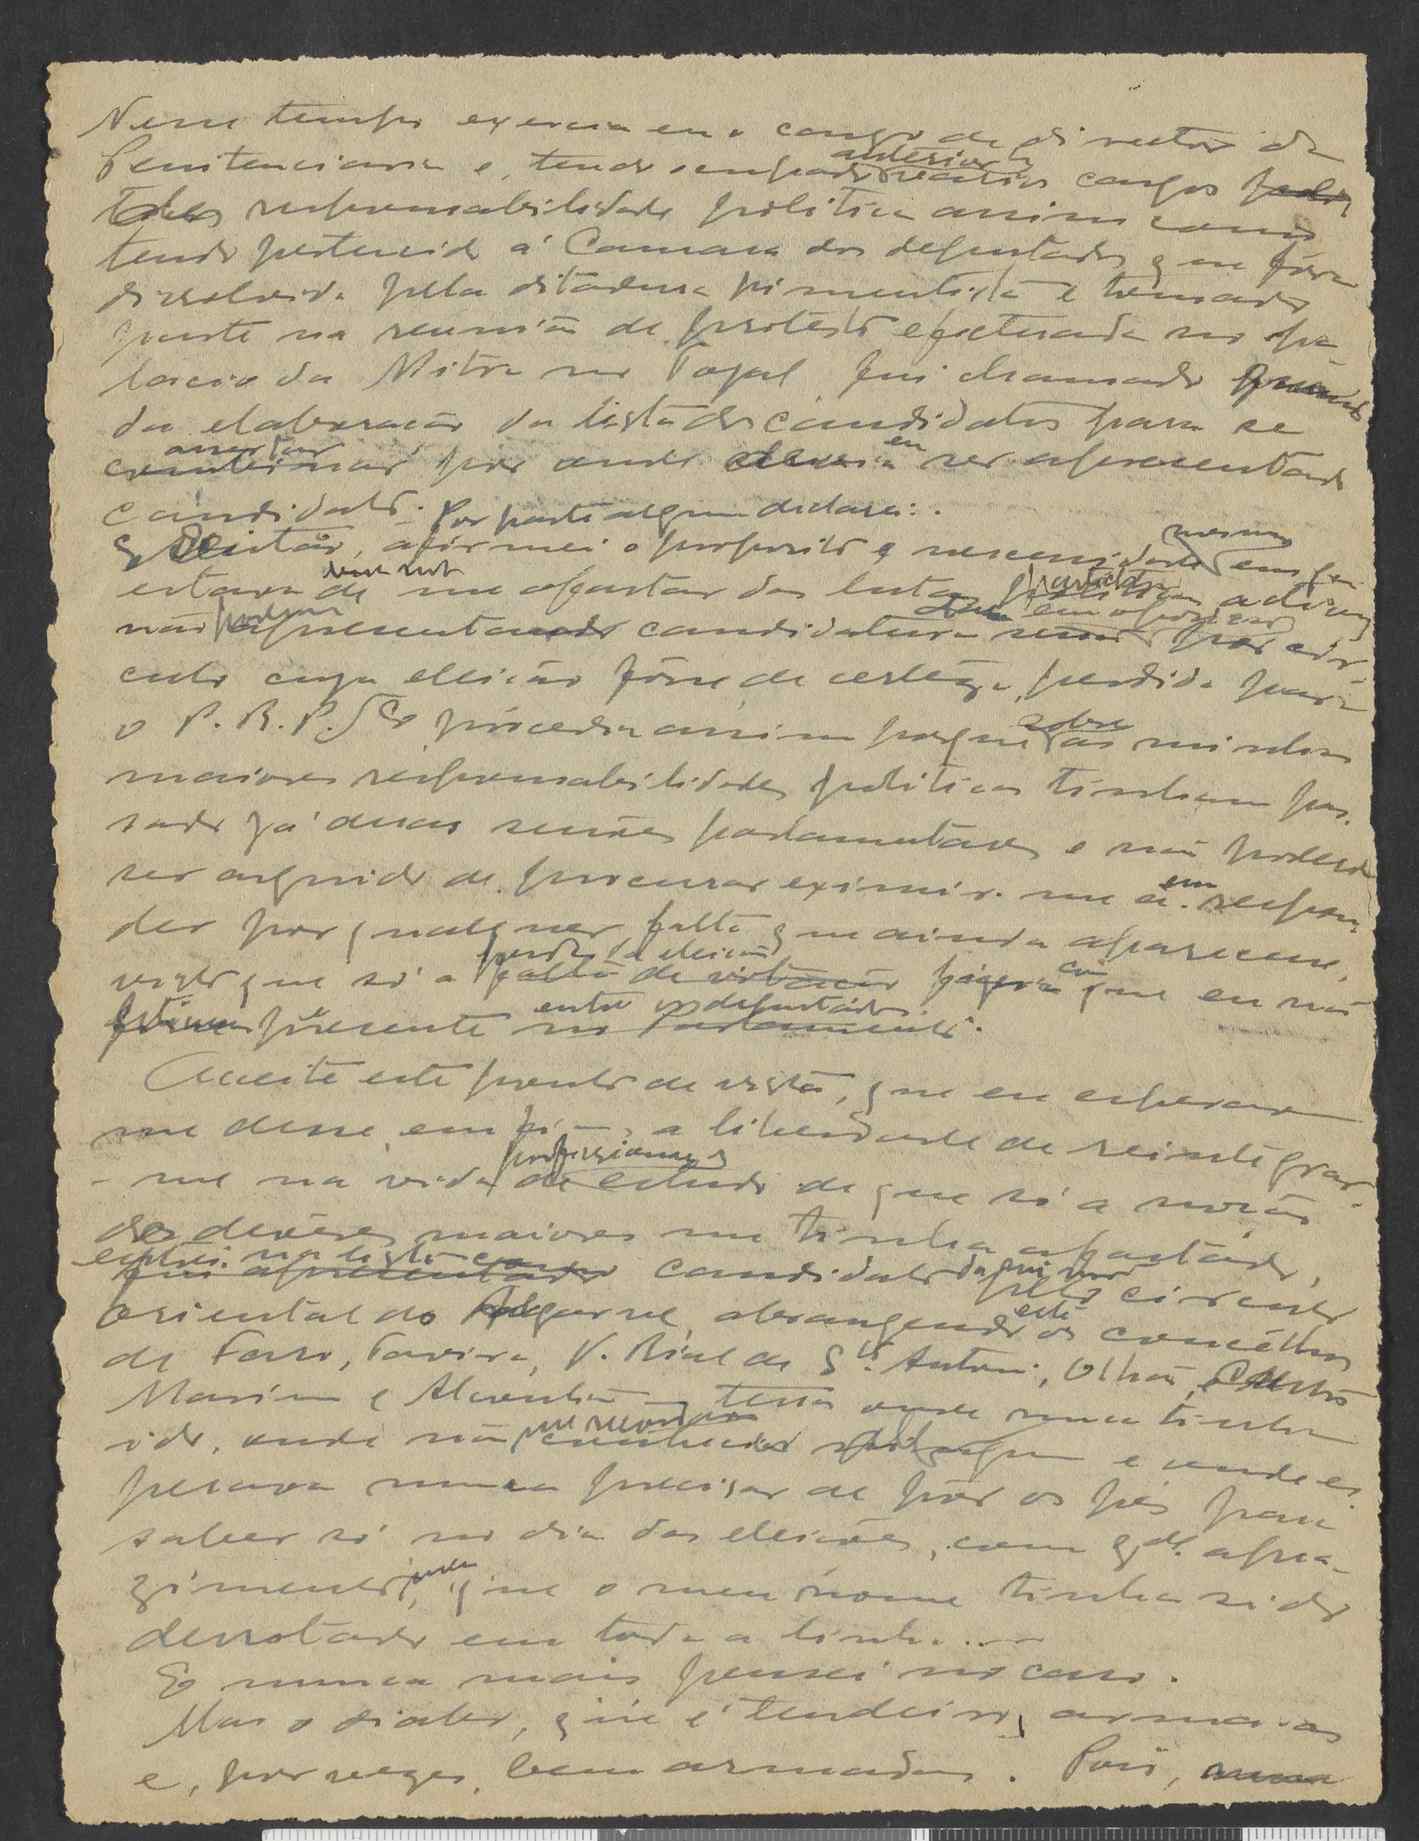 Nesse tempo exercia eu o cargo de director da
Penitenciaria e, tendo ocupado anteriormente varios cargos
todos responsabilidade politica assim como
tendo pertencido á Camara dos deputados que fôra
dissolvida pela ditadura pimentista e tomado
parte na reunião de protesto efectuada no pa-
lacio da Mitra no Tojal fui chamado quando
da elaboração da lista dos candidatos para se
assentar por onde eu ser apresentado
candidato. Por parte alguma declarei:
então, afirmei o proposito e necessidade mesmo em que
estava de me afastar das lutas partidarias
não apresentando candidatura por cir-
culo cuja eleição fôsse de certeza perdida para
o P. R. P. Eu procedia assim porque sobre as minhas
maiores responsabilidades politicas tinham pas-
sado já duas sessões parlamentares e não poderia
ser arguido de procurar eximir-me a respon-
der por qualquer falta que ainda aparecesse,
visto que só a perda da eleição faria com que eu não
estivesse presente entre os deputados.
Aceite este ponto de vista, que eu esperava
me desse, emfim, a liberdade de reintegrar-
-me na vida profissional de estudo de que só a noção
dos deveres maiores me tinha afastado,
entrei na lista como candidato pelo circulo
oriental do Algarve, abrangendo este os concelhos
de Faro, Tavira, V. Rial de Sto. Antonio, Olhão, Castro
Marim e Alcoutim – terra onde nunca tinha
ido, onde não conhecia ninguem e onde es-
perava nunca precisar de pôr os pés para
saber só no dia das eleições, com gde. apra-
zimento, que o meu nome tinha sido
derrotado em toda a linha....
E nunca mais pensei no caso.
Mas o diabo, que é tendeiro, arma-as
e, por vezes, bem armadas. Pois,